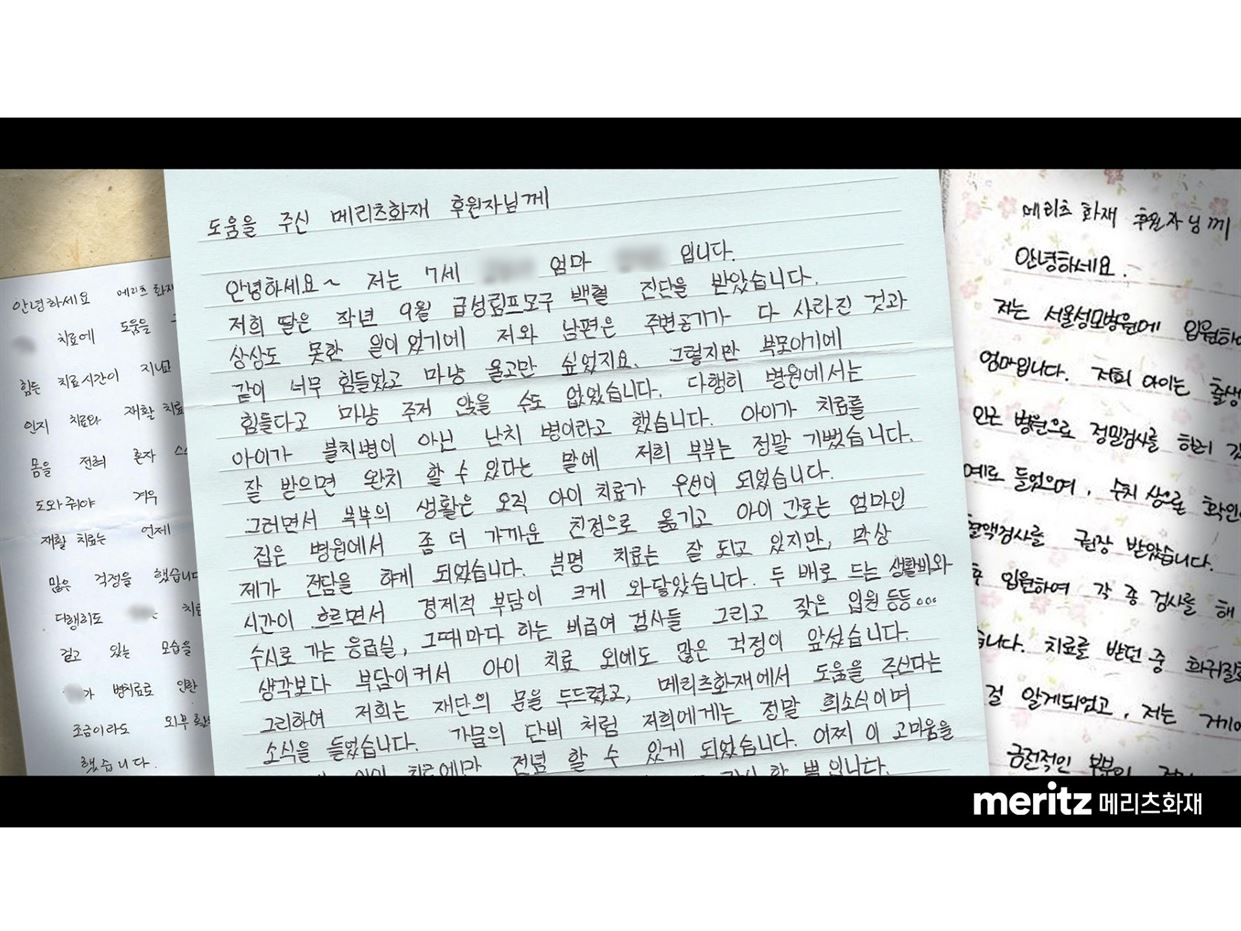 도움을 주신 메리츠화재 후원자님께
안녕하세요~ 저는 7세 엄마 입니다.
저희 딸은 작년 9월 급성림프모구 백혈 진단을 받았습니다.
상상도 못한 일이 있기에 저와 남편은 주변공기가 다 사라진 것과
같이 너무 힘들었고 마냥 울고만 싶었지요. 그렇지만 부모이기에
힘들다고 마냥 주저 앉을 수도 없었습니다. 다행히 병원에서는
아이가 불치병이 아닌 난치 병이라고 했습니다. 아이가 치료를
잘 받으면 완치 할 수 있다는 말에 저희 부부는 정말 기뻤습니다.
그러면서 부부의 생활은 오직 아이 치료가 우선이 되었습니다.
집은 병원에서 좀 더 가까운 친정으로 옮기고 아이 간호는 엄마인
제가 전담을 하게 되었습니다. 분명 치료는 잘 되고 있지만, 막상
시간이 흐르면서 경제적 부담이 크게 와닿았습니다. 두 배로 드는 생활비와
수시로 가는 응급실, 그때마다 하는 비급여 검사들 그리고 잦은 입원 등등...
생각보다 부담이커서 아이 치료 외에도 많은 걱정이 앞섰습니다.
그리하여 저희는 재단의 문을 두드렸고, 메리츠화재에서 도움을 주신다는
소식을 들었습니다. 가뭄의 단비 처럼 저희에게는 정말 희소식이며
전념 할 수 있게 되었습니다. 어찌 이 고마움을
안녕하세요 메리츠 화재
치료에 도움을
힘든 치료시간이 지나고
인지 치료와 재활 치료
몸을 전혀 혼자
도와줘야 겨우
재활 치료는 언제
많은 걱정을 했습니다
다행히도
걷고 있는 모습을
가 병치료로 인한
조금이라도 외부
했습니다.
메리츠 화재 후원자님께
안녕하세요.
저는 서울성모병원에 입원하
엄마입니다. 저희 아이는 출생
인근 병원으로 정밀검사를 하러
예로 들었으며, 수치 상으로 확인
혈액검사를 권장 받았습니다.
입원하여 각 종 검사를 해
습니다. 치료를 받던 중
걸 알게되었고, 저는
금전적인 부분의
meritz 메리츠화재